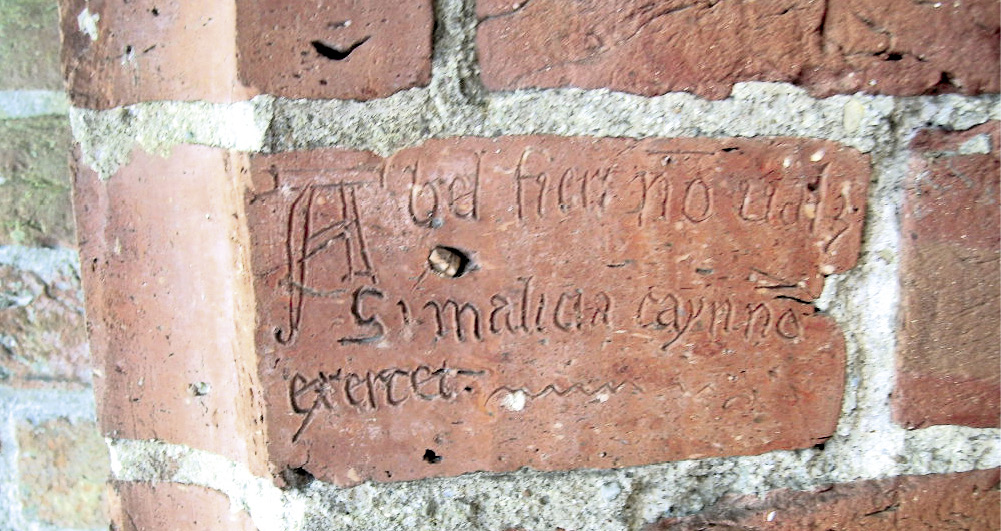 Abel fieri nō valꝫ
Si malicia cayn nō
exercet.